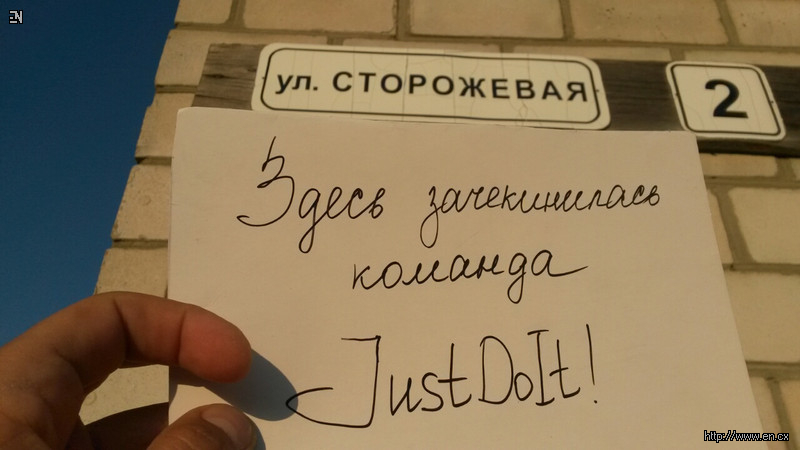 EN
ул. СТОРОЖЕВАЯ
2
Здесь зачекинилась
команда
JustDoIt!
http://www.en.cx